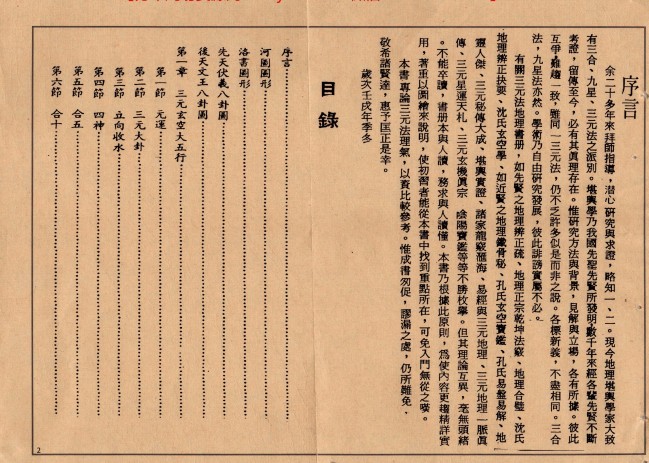 序言
余二十多年來拜師指導，潛心研究與求證，略知一、二。現今地理堪輿學家大致
有三合、九星、三元法之派別。堪輿學乃我國先聖先賢所發明，數千年來經各輩先賢不斷
考證，留傳至今，必有其眞理存在。惟研究方法與背景，見解與立場，各有所據。彼此
互爭難趨一致，雖同一三元法，仍不乏許多似是而非之說。各標新義，不盡相同。三合
法，九星法亦然。學術乃自由研究發展，彼此誹謗實屬不必。
有關三元法地理書册，如先賢之地理辨正疏、地理正宗乾坤法竅、地理合璧、沈氏
地理辨正抉要、沈氏玄空學、如近賢之地理鐵骨秘、孔氏玄空寶鑑、孔氏易盤易解、地
靈人傑、三元秘傳大成、堪輿實證、諸家龍竅滙海、易經與三元地理、三元地理一脈眞
傳、三元星運天札、三元玄機眞宗　陰陽寶鑑等等不勝枚舉。但其理論互異，毫無頭緒
。不能卒讀，書册本與人讀，務求與人讀懂。本書乃根據此原則，爲使內容更趨精詳實
用，著重以圖繪來說明，使初習者能從本書中找到重點所在，可免入門無從之嘆。
本書專論三元法理氣，以資比較參考。惟成書匆促，膠漏之處，仍所難免。
敬希諸賢達，惠予匡正是幸。
歲次壬戌年季冬
目錄
序言
河圖圖形
洛書圖形
先天伏義八卦圖
後天文王八卦圖
第一章　三元玄空大五行
第一節　元運
第二節　三元大卦
第三節　立向收水
第四節　四神
第五節　合五
第六節　合十
2